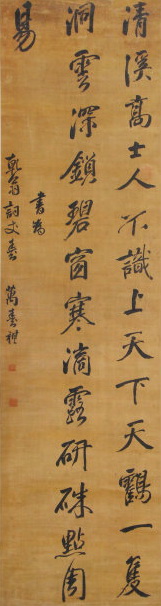 清溪高士人不識上天下天鶴一隻
洞雲深鎖碧窗寒滴露研硃點周
易
書為
翁詞丈
萬壽祺